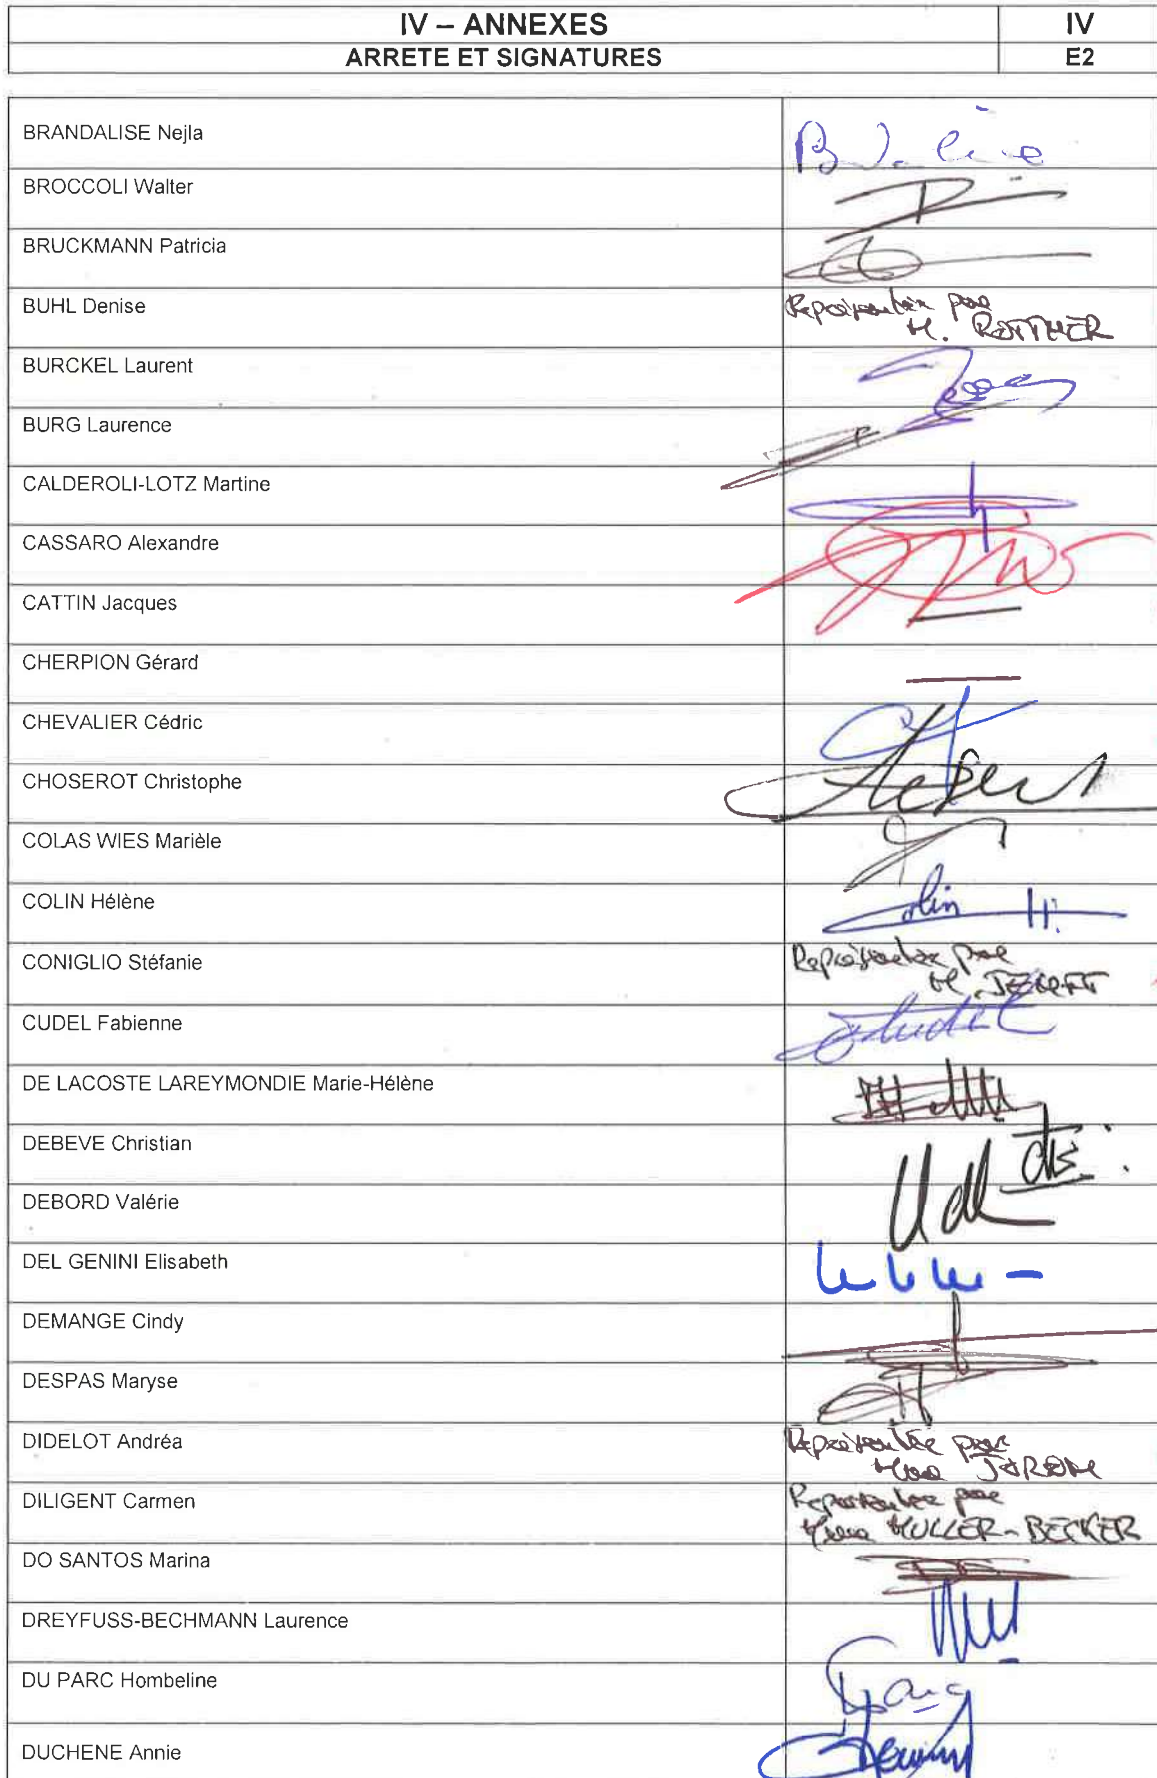 IV – ANNEXES
IV
ARRETE ET SIGNATURES
E2
BRANDALISE Nejla
BROCCOLI Walter
BRUCKMANN Patricia
BUHL Denise
Représentée par
M. ROTTNER
BURCKEL Laurent
BURG Laurence
CALDEROLI-LOTZ Martine
CASSARO Alexandre
CATTIN Jacques
CHERPION Gérard
CHEVALIER Cédric
CHOSEROT Christophe
COLAS WIES Marièle
COLIN Hélène
Colin H.
CONIGLIO Stéfanie
Représentée par
M.
CUDEL Fabienne
DE LACOSTE LAREYMONDIE Marie-Hélène
DEBEVE Christian
DEBORD Valérie
DEL GENINI Elisabeth
DEMANGE Cindy
DESPAS Maryse
DIDELOT Andréa
Représentée par
Mme JAROM
DILIGENT Carmen
Représentée par
Mme MULLER-BECKER
DO SANTOS Marina
DREYFUSS-BECHMANN Laurence
DU PARC Hombeline
DUCHENE Annie